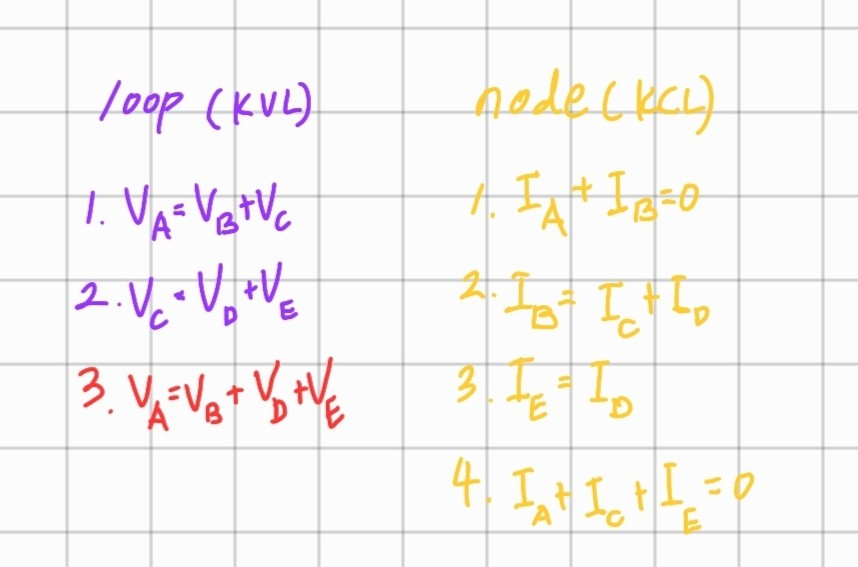 loop (KVL)
1. V_A = V_B + V_C
2. V_C = V_D + V_E
3. V_A = V_B + V_D + V_E
node (KCL)
1. I_A + I_B = 0
2. I_B = I_C + I_D
3. I_E = I_D
4. I_A + I_C + I_E = 0